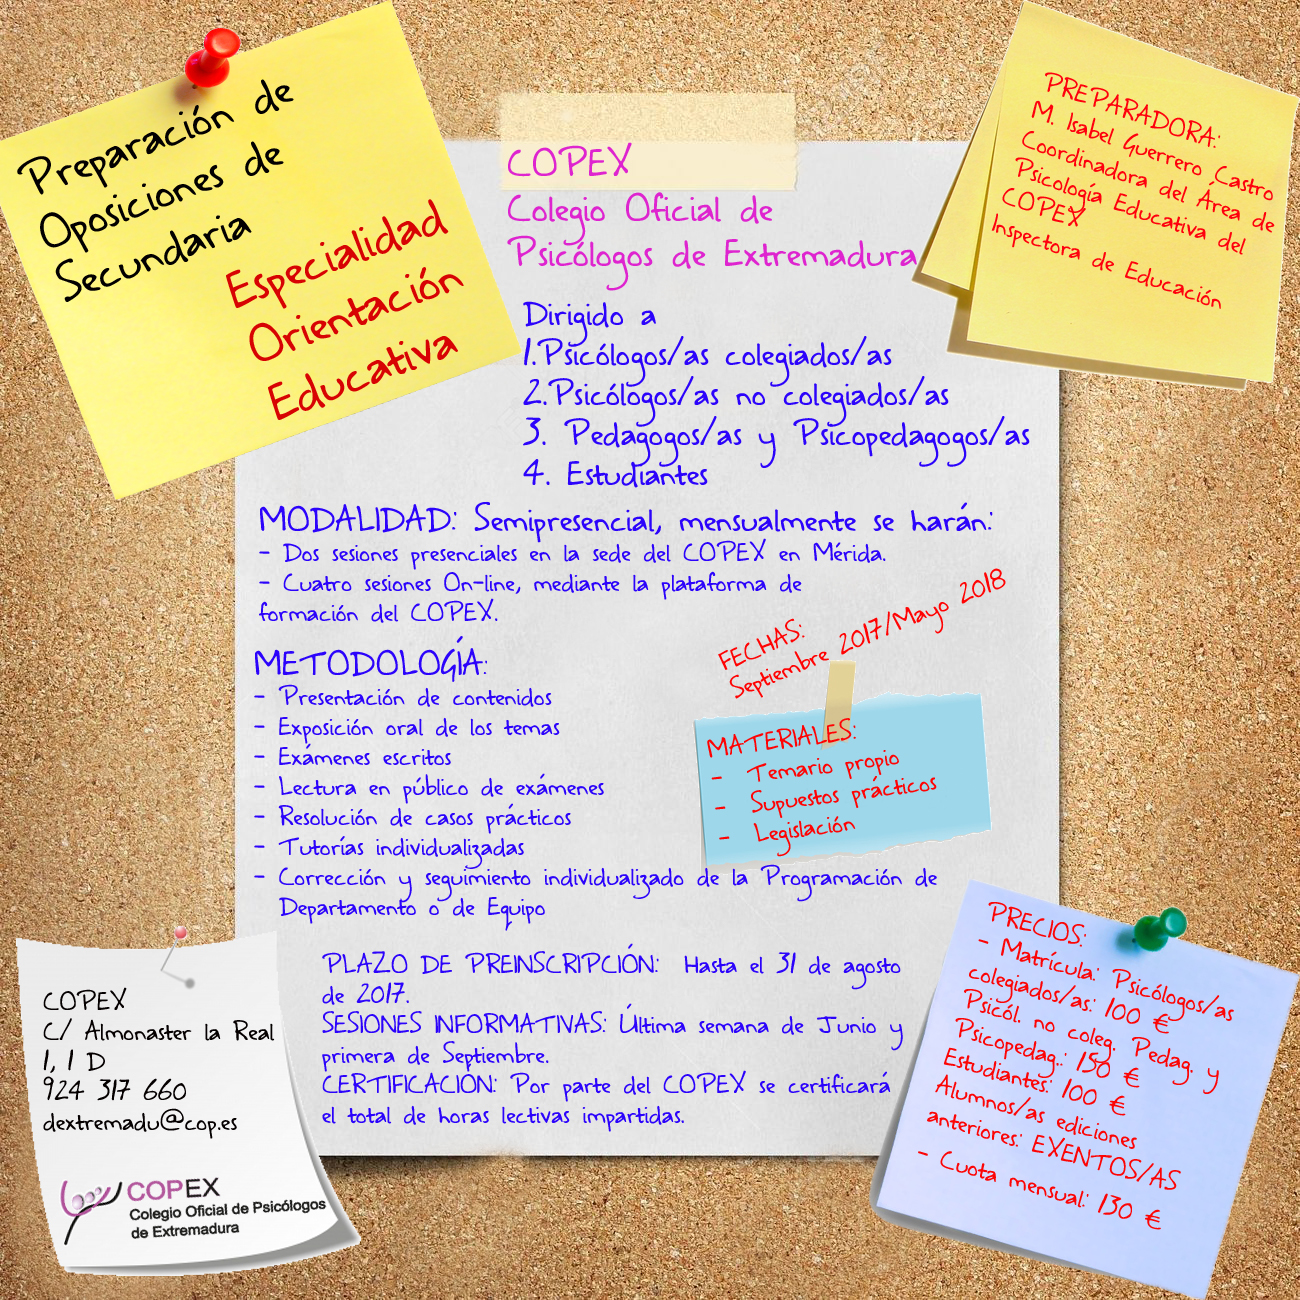 Preparación de
Oposiciones de
Secundaria
Especialidad
Orientación
Educativa
COPEX
Colegio Oficial de
Psicólogos de Extremadura
PREPARADORA:
M. Isabel Guerrero Castro
Coordinadora del Área de
Psicología Educativa del
COPEX
Inspectora de Educación
Dirigido a
1.Psicólogos/as colegiados/as
2.Psicólogos/as no colegiados/as
3. Pedagogos/as y Psicopedagogos/as
4. Estudiantes
MODALIDAD: Semipresencial, mensualmente se harán:
- Dos sesiones presenciales en la sede del COPEX en Mérida.
- Cuatro sesiones On-line, mediante la plataforma de
formación del COPEX.
FECHAS:
Septiembre 2017/Mayo 2018
METODOLOGÍA:
- Presentación de contenidos
- Exposición oral de los temas
- Exámenes escritos
- Lectura en público de exámenes
- Resolución de casos prácticos
- Tutorías individualizadas
- Corrección y seguimiento individualizado de la Programación de
Departamento o de Equipo
MATERIALES:
- Temario propio
- Supuestos prácticos
- Legislación
PLAZO DE PREINSCRIPCIÓN: Hasta el 31 de agosto
de 2017.
SESIONES INFORMATIVAS: Última semana de Junio y
primera de Septiembre.
CERTIFICACIÓN: Por parte del COPEX se certificará
el total de horas lectivas impartidas.
COPEX
C/ Almonaster la Real
1, 1 D
924 317 660
dextremadu@cop.es
COPEX
Colegio Oficial de Psicólogos
de Extremadura
PRECIOS:
- Matrícula: Psicólogos/as
colegiados/as: 100 €
Psicól. no coleg. Pedag. y
Psicopedag.: 150 €
Estudiantes: 100 €
Alumnos/as ediciones
anteriores: EXENTOS/AS
- Cuota mensual: 130 €